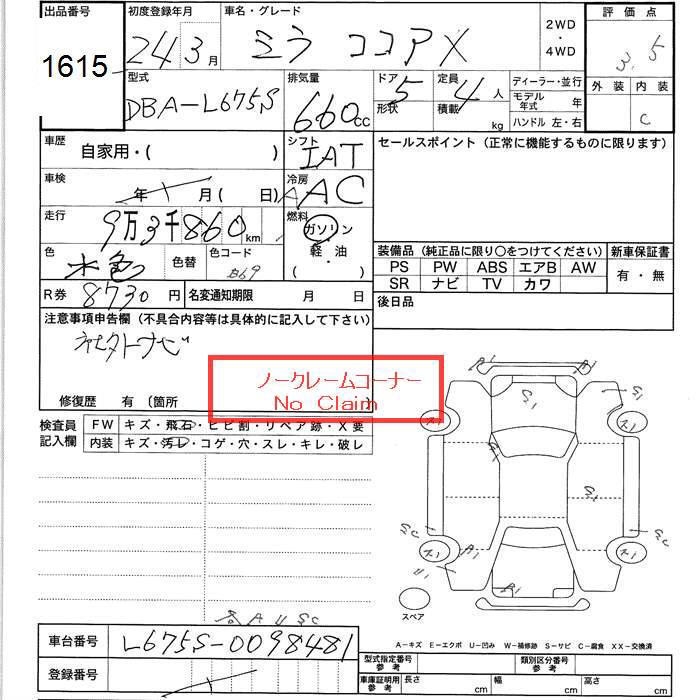 出品番号 初度登録年月 車名・グレード 2WD・4WD 評価点
1615 24 3月 ミラ ココア X 3.5
型式 排気量 ドア形状 定員積載 ディーラー・並行 外装 内装
DBA-L675S 660cc 5 4人 kg モデル年式 年 C
ハンドル 左・右
車歴 自家用・( ) シフト IAT セールスポイント (正常に機能するものに限ります)
車検 年 月( 日) 冷房 AAC
走行 9万3千860km 燃料 ガソリン・軽・油( )
色 水色 色替 色コード B69
装備品(純正品に限り○をつけてください) 新車保証書
PS PW ABS エアB AW 有・無
SR ナビ TV カワ
R券 8730円 名変通知期限 月 日 後日品
注意事項申告欄(不具合内容等は具体的に記入して下さい)
ノークレームコーナー
No Claim
修復歴 有 〔箇所
検査員記入欄 FW キズ・飛石・ヒビ割・リペア跡・X要
内装 キズ・汚レ・コゲ・穴・スレ・キレ・破レ
スペア
A U SC
A-キズ E-エクボ U-凹み W-補修跡 S-サビ C-腐食 XX-交換済
車台番号 L675S-0098481 型式指定番号参考 類別区分番号参考
登録番号 車庫証明用参考 長さ cm 幅 cm 高さ cm